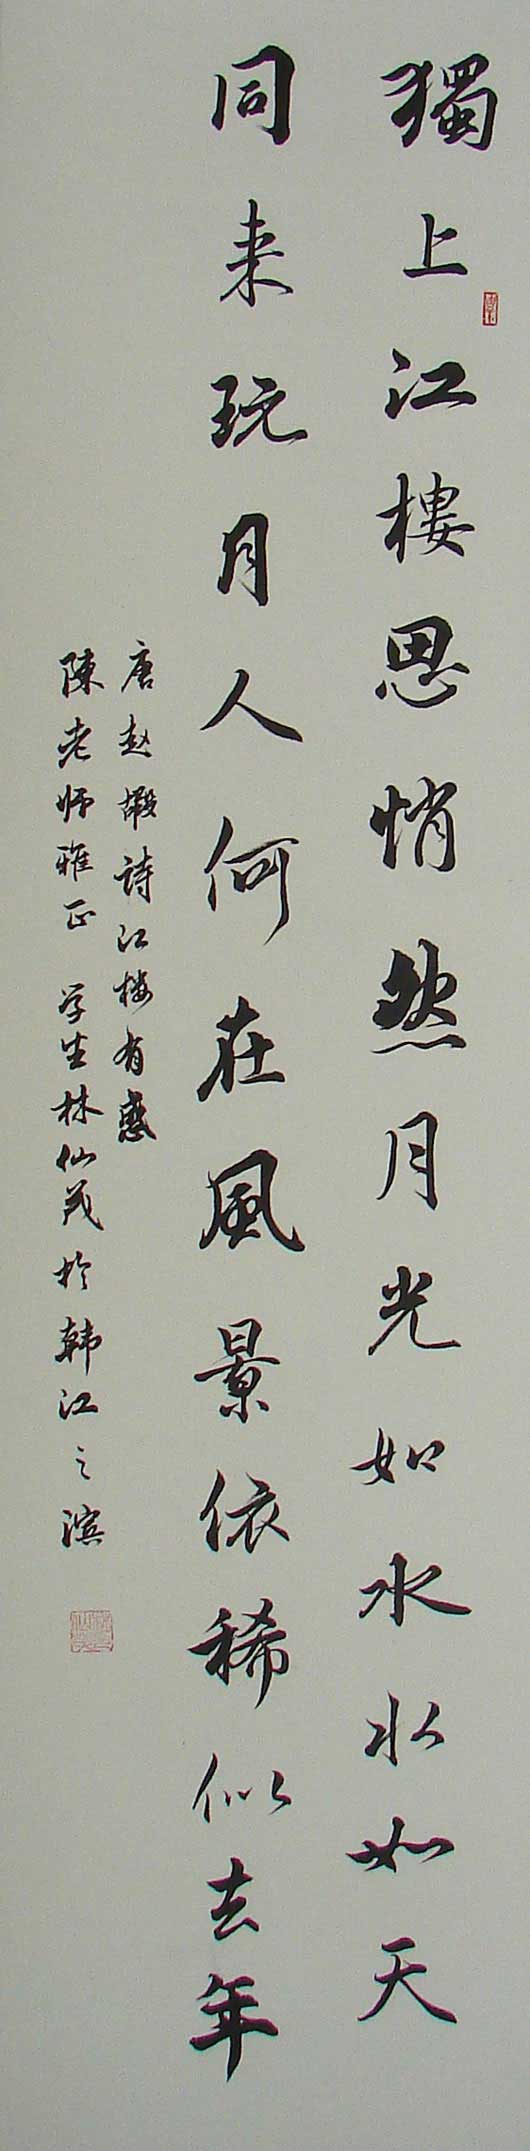 獨上江樓思悄然月光如水水如天
同来玩月人何在風景依稀似去年
唐赵嘏詩江楼有感
陳老师雅正 学生林仙茂於韩江之滨